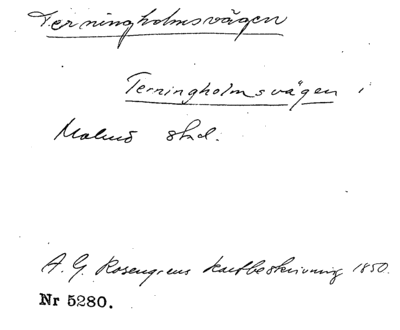 Terningholmsvägen
Terningholmsvägen i
Malmö stad.
A. G. Rosengrens kartbeskrivning 1850.
Nr 5280.